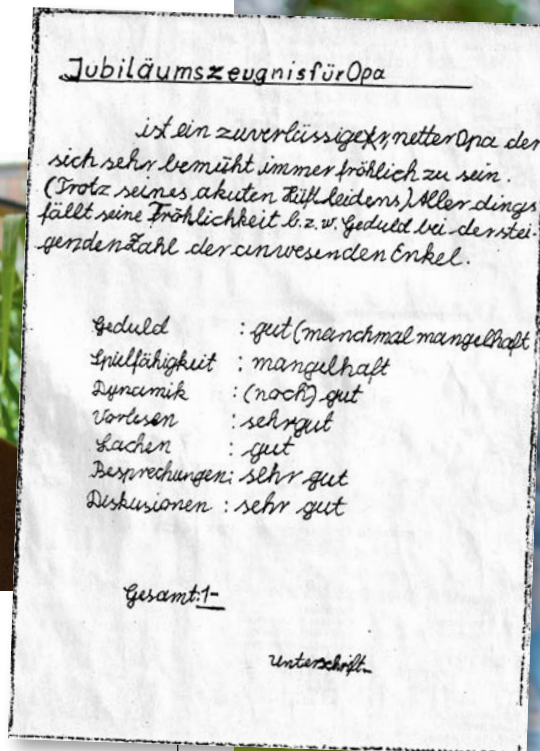 Jubiläumszeugnis für Opa
ist ein zuverlässiger, netter Opa der
sich sehr bemüht immer fröhlich zu sein.
(Trotz seines akuten Hüftleidens) Allerdings
fällt seine Fröhlichkeit b.z.w. Geduld bei der stei-
genden Zahl der anwesenden Enkel.
Geduld : gut (manchmal mangelhaft
Spielfähigkeit : mangelhaft
Dynamik : (noch) gut
Vorlesen : sehr gut
Lachen : gut
Besprechungen: sehr gut
Diskusionen : sehr gut
Gesamt: 1-
Unterschrift